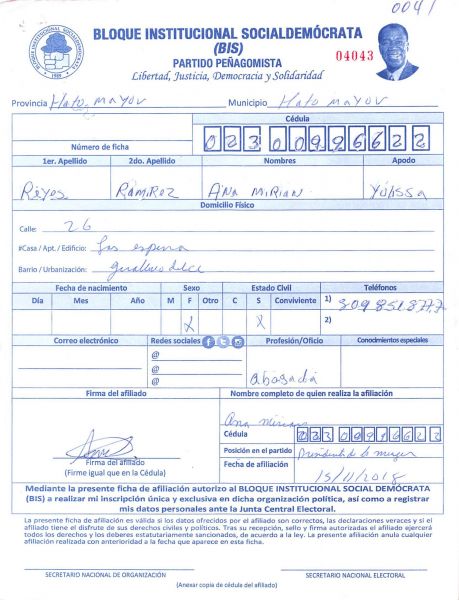 0041
BLOQUE INSTITUCIONAL SOCIALDEMÓCRATA
(BIS)
PARTIDO PEÑAGOMISTA
Libertad, Justicia, Democracia y Solidaridad
04043
BLOQUE INSTITUCIONAL SOCIALDEMOCRATA
Provincia Hato mayor Municipio Hato mayor
Número de ficha
Cédula
023 0099662 2
1er. Apellido 2do. Apellido Nombres Apodo
Reyes RAMIREZ ANA MIRIAN
Domicilio Físico
Calle: 26
#Casa / Apt. / Edificio: Las espina
Barrio / Urbanización:
Fecha de nacimiento Sexo Estado Civil Teléfonos
Día Mes Año M F Otro C S Conviviente 1) 809 851 8777
X X 2)
Correo electrónico Redes sociales Profesión/Oficio Conocimientos especiales
@
@
@
abogada
Firma del afiliado Nombre completo de quien realiza la afiliación
Ana Mirian
Cédula
Posición en el partido Presidenta de la mujer
Fecha de afiliación 15/11/2018
Firma del afiliado
(Firme igual que en la Cédula)
Mediante la presente ficha de afiliación autorizo al BLOQUE INSTITUCIONAL SOCIAL DEMÓCRATA
(BIS) a realizar mi inscripción única y exclusiva en dicha organización política, así como a registrar
mis datos personales ante la Junta Central Electoral.
La presente ficha de afiliación es válida si los datos ofrecidos por el afiliado son correctos, las declaraciones veraces y si el
afiliado tiene el disfrute de sus derechos civiles y políticos. Tras su recepción, sello y firma autorizadas el afiliado ejercerá
todos los derechos y los deberes estatutariamente sancionados, de acuerdo a la ley. La presente afiliación anula cualquier
afiliación realizada con anterioridad a la fecha que aparece en esta ficha.
SECRETARIO NACIONAL DE ORGANIZACIÓN SECRETARIO NACIONAL ELECTORAL
(Anexar copia de cédula del afiliado)